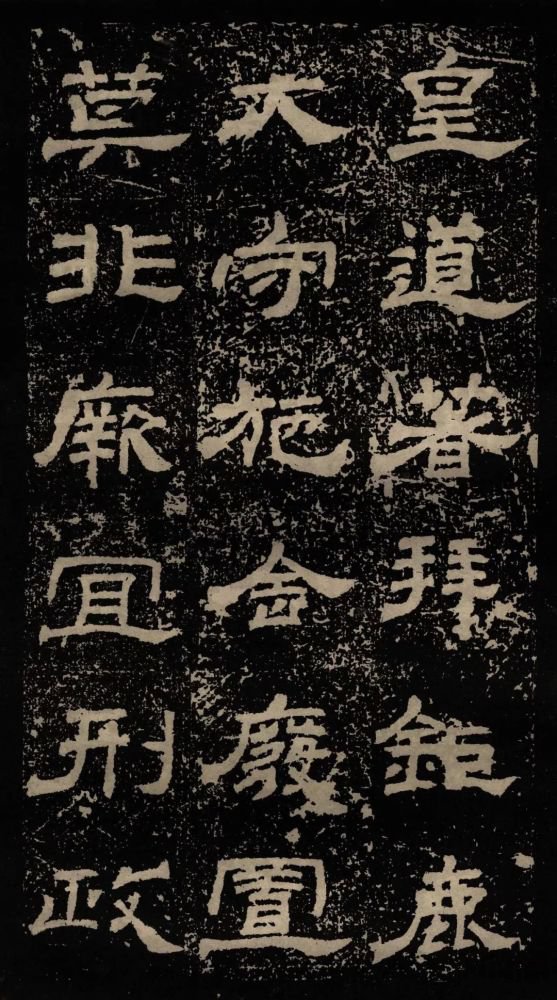 皇道著拜鉅鹿
大守施舍廢置
莫非厥宜刑政